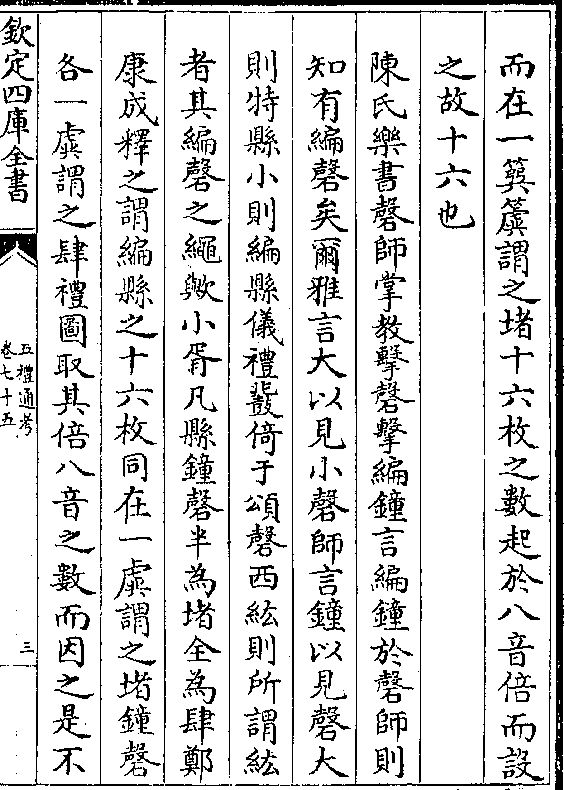 而在一簨簴謂之堵十六枚之數起於八音倍而設
之故十六也
陳氏樂書磬師掌教擊磬擊編鐘言編鐘於磬師則
知有編磬矣爾雅言大以見小磬師言鐘以見磬大
則特縣小則編縣儀禮鼗倚于頌磬西紘則所謂紘
者其編磬之繩歟小胥凡縣鐘磬半為堵全為肆鄭
康成釋之謂編縣之十六枚同在一虡謂之堵鐘磬
各一虡謂之肆禮圖取其倍八音之數而因之是不
欽定四庫全書
五禮通考
卷七十五
三